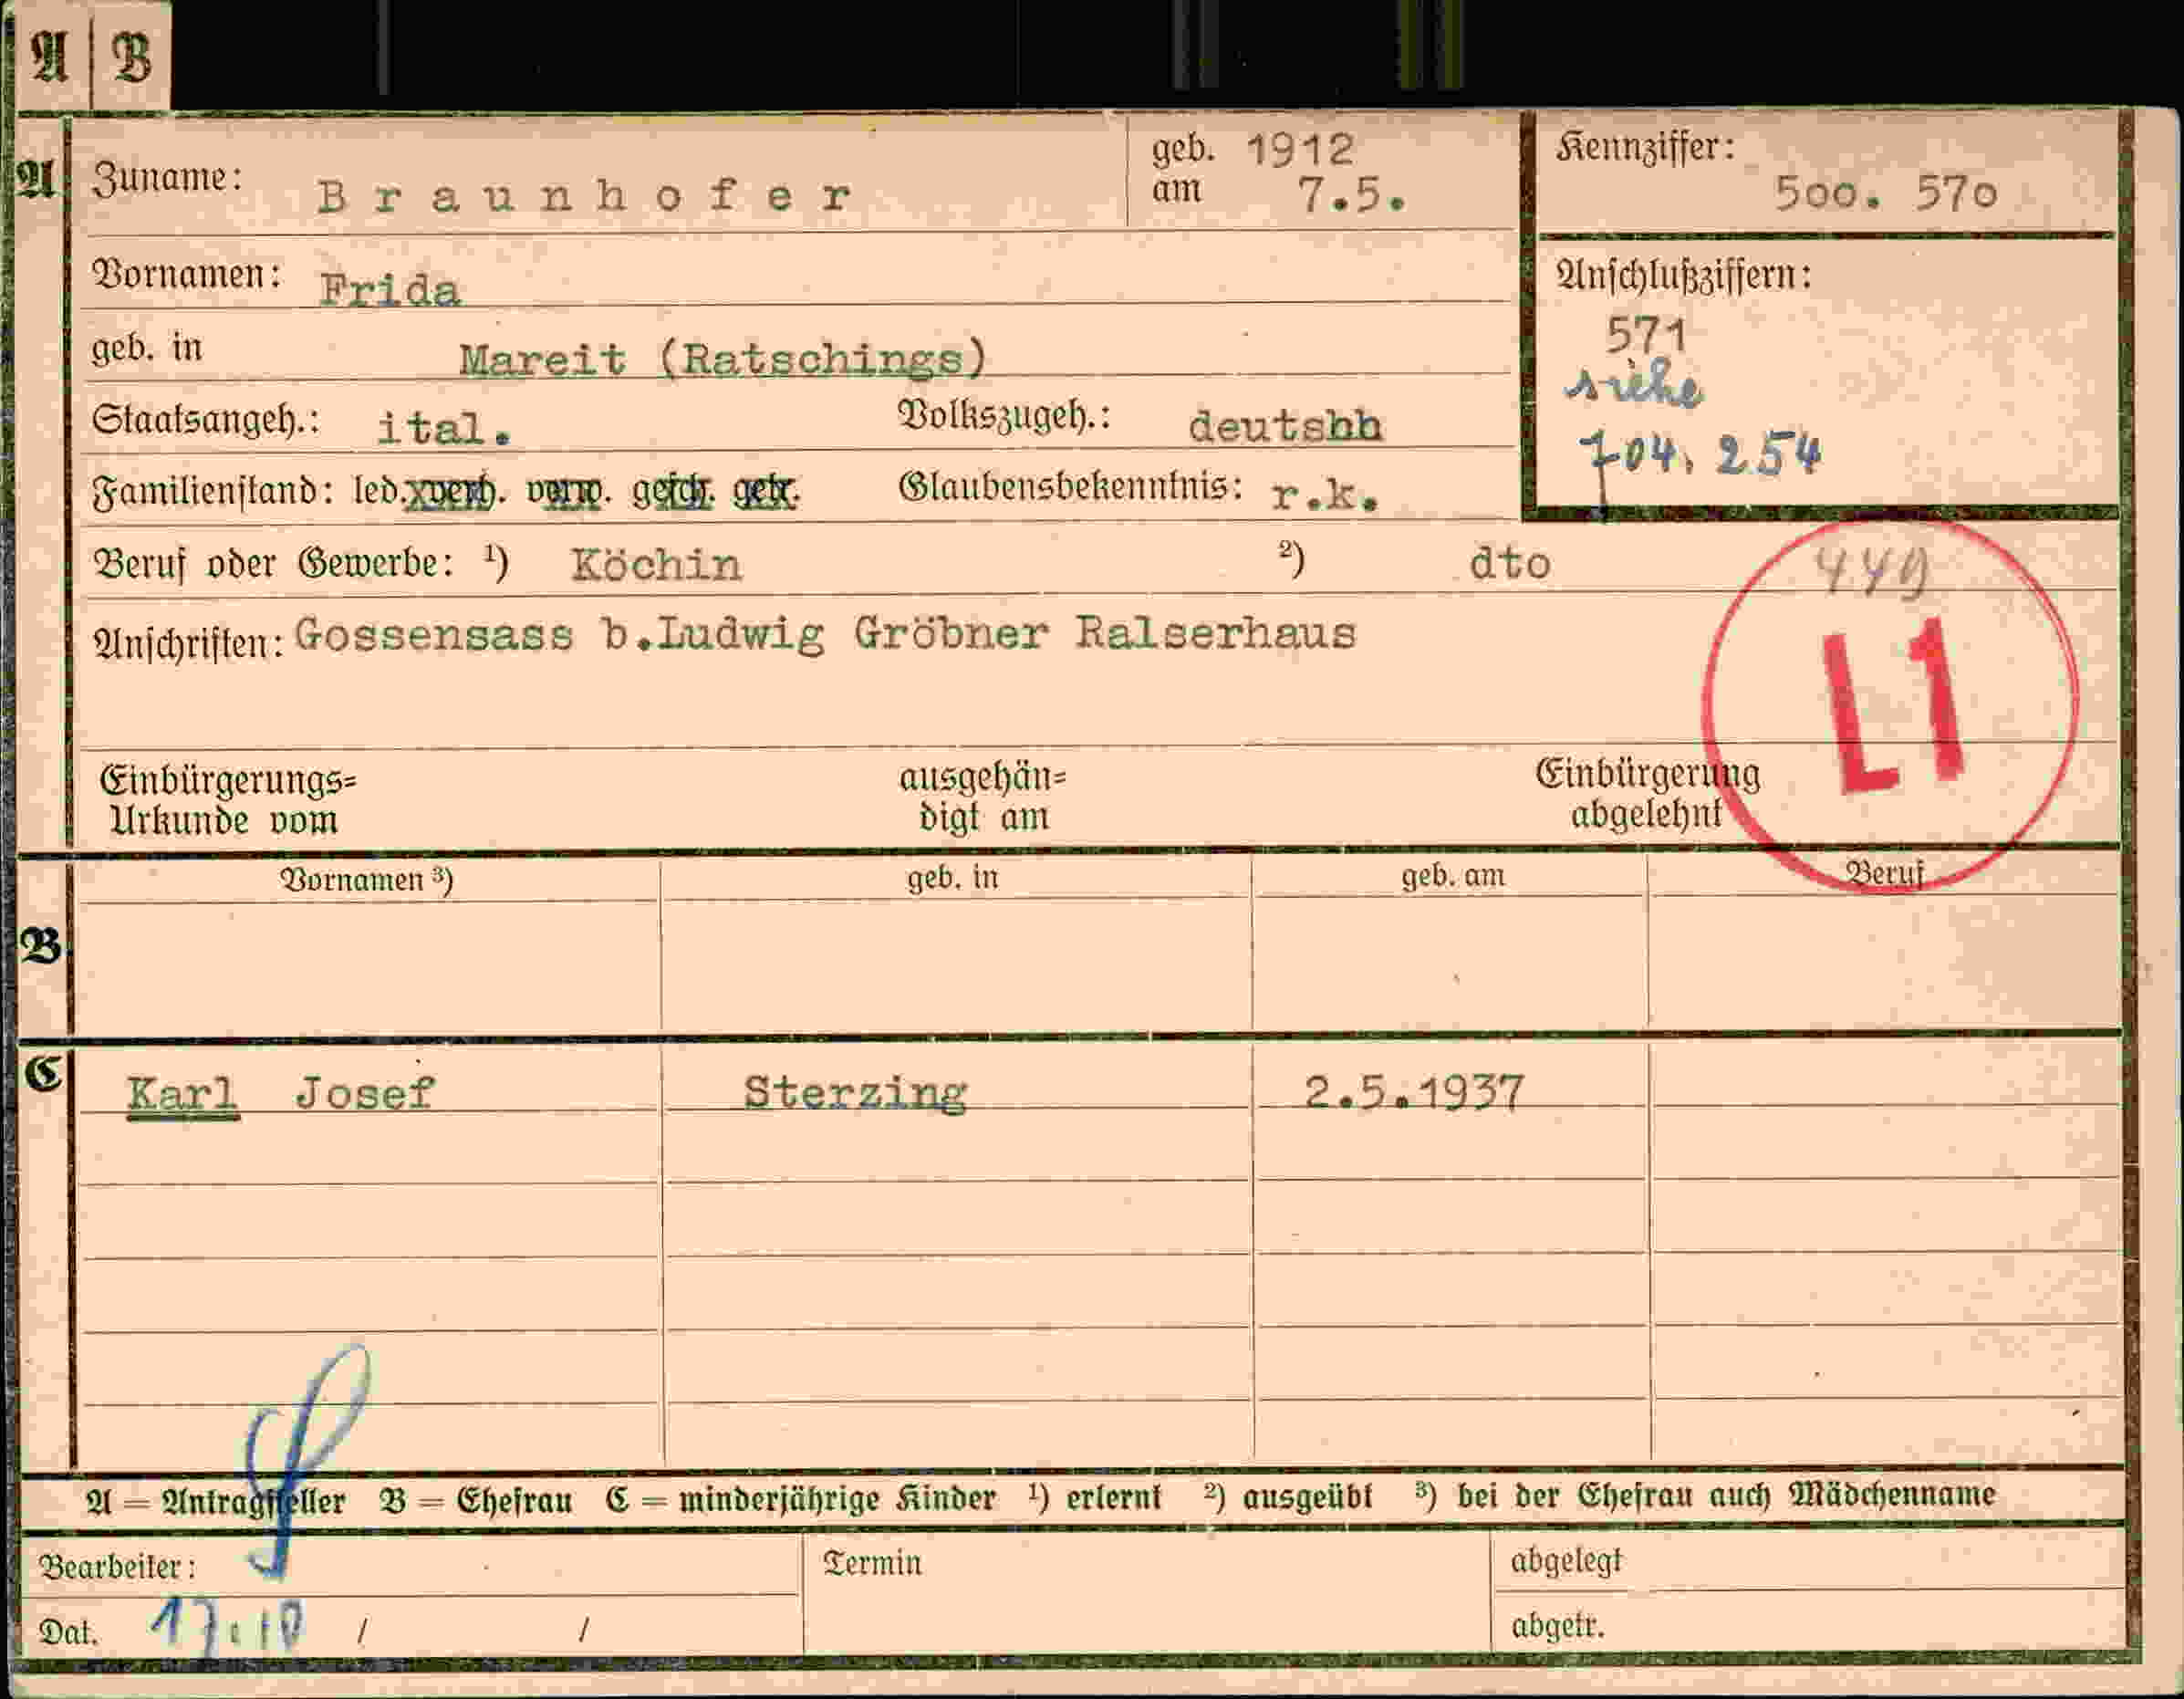 A B
A
Zuname: Braunhofer
geb. 1912
am 7.5.
Kennziffer:
500. 570
Vornamen: Frida
Anschlußziffern:
571
siehe
704. 254
geb. in Mareit (Ratschings)
Staatsangeh.: ital. Volkszugeh.: deutshh
Familienstand: led. verh. verw. gesch. getr. Glaubensbekenntnis: r.k.
Beruf oder Gewerbe: ¹) Köchin ²) dto
449
L1
Anschriften: Gossensass b.Ludwig Gröbner Ralserhaus
Einbürgerungs=
Urkunde vom
ausgehän=
digt am
Einbürgerung
abgelehnt
B
Vornamen ³) geb. in geb. am Beruf
C
Karl Josef Sterzing 2.5.1937
A = Antragsteller B = Ehefrau C = minderjährige Kinder ¹) erlernt ²) ausgeübt ³) bei der Ehefrau auch Mädchenname
Bearbeiter: Termin abgelegt
Dat. 17.10 / / abgetr.